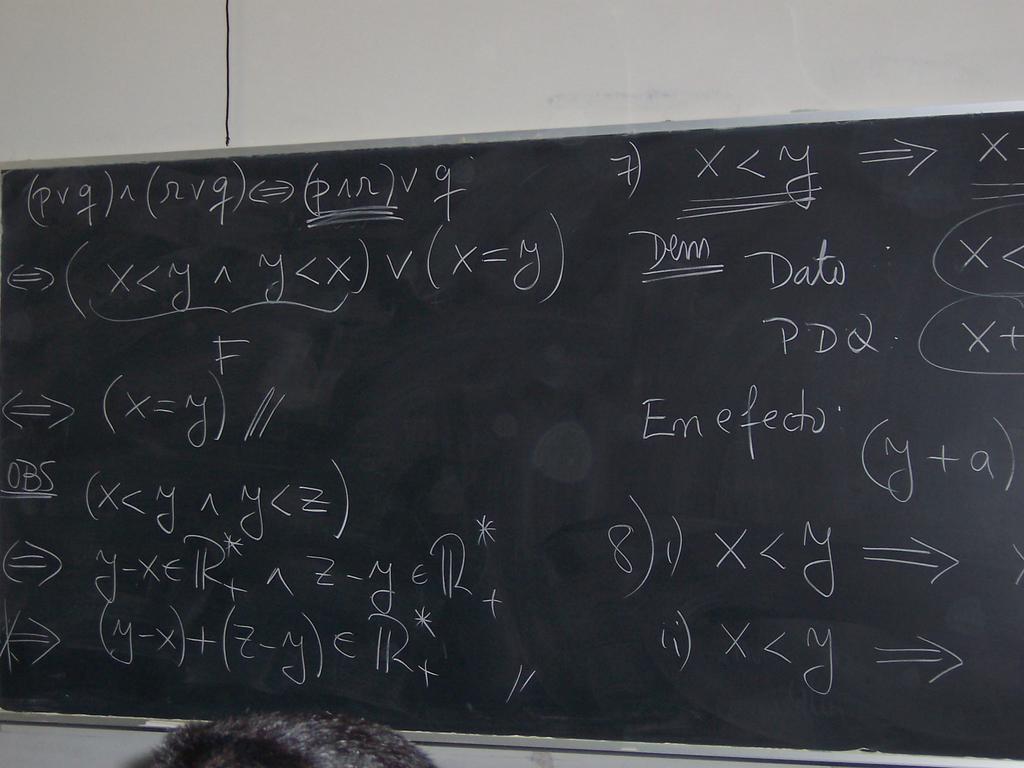 (p∨q)∧(r∨q)⇔(p∧r)∨q
⇔(x<y ∧ y<x)∨(x=y)
F
⇔ (x=y)//
OBS (x<y ∧ y<z)
⇔ y-x∈ℝ*₊ ∧ z-y∈ℝ*₊
⇏ (y-x)+(z-y)∈ℝ*₊ //
7) x<y ⇒ x
Dem Dato : x<
PDQ. x+
En efecto: (y+a)
8) i) x<y ⇒
ii) x<y ⇒